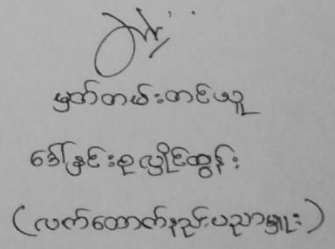 မှတ်တမ်းတင်ယူ
ဒေါ်နှင်းစုလှိုင်ထွန်း
(လက်ထောက်နည်းပညာမှူး)